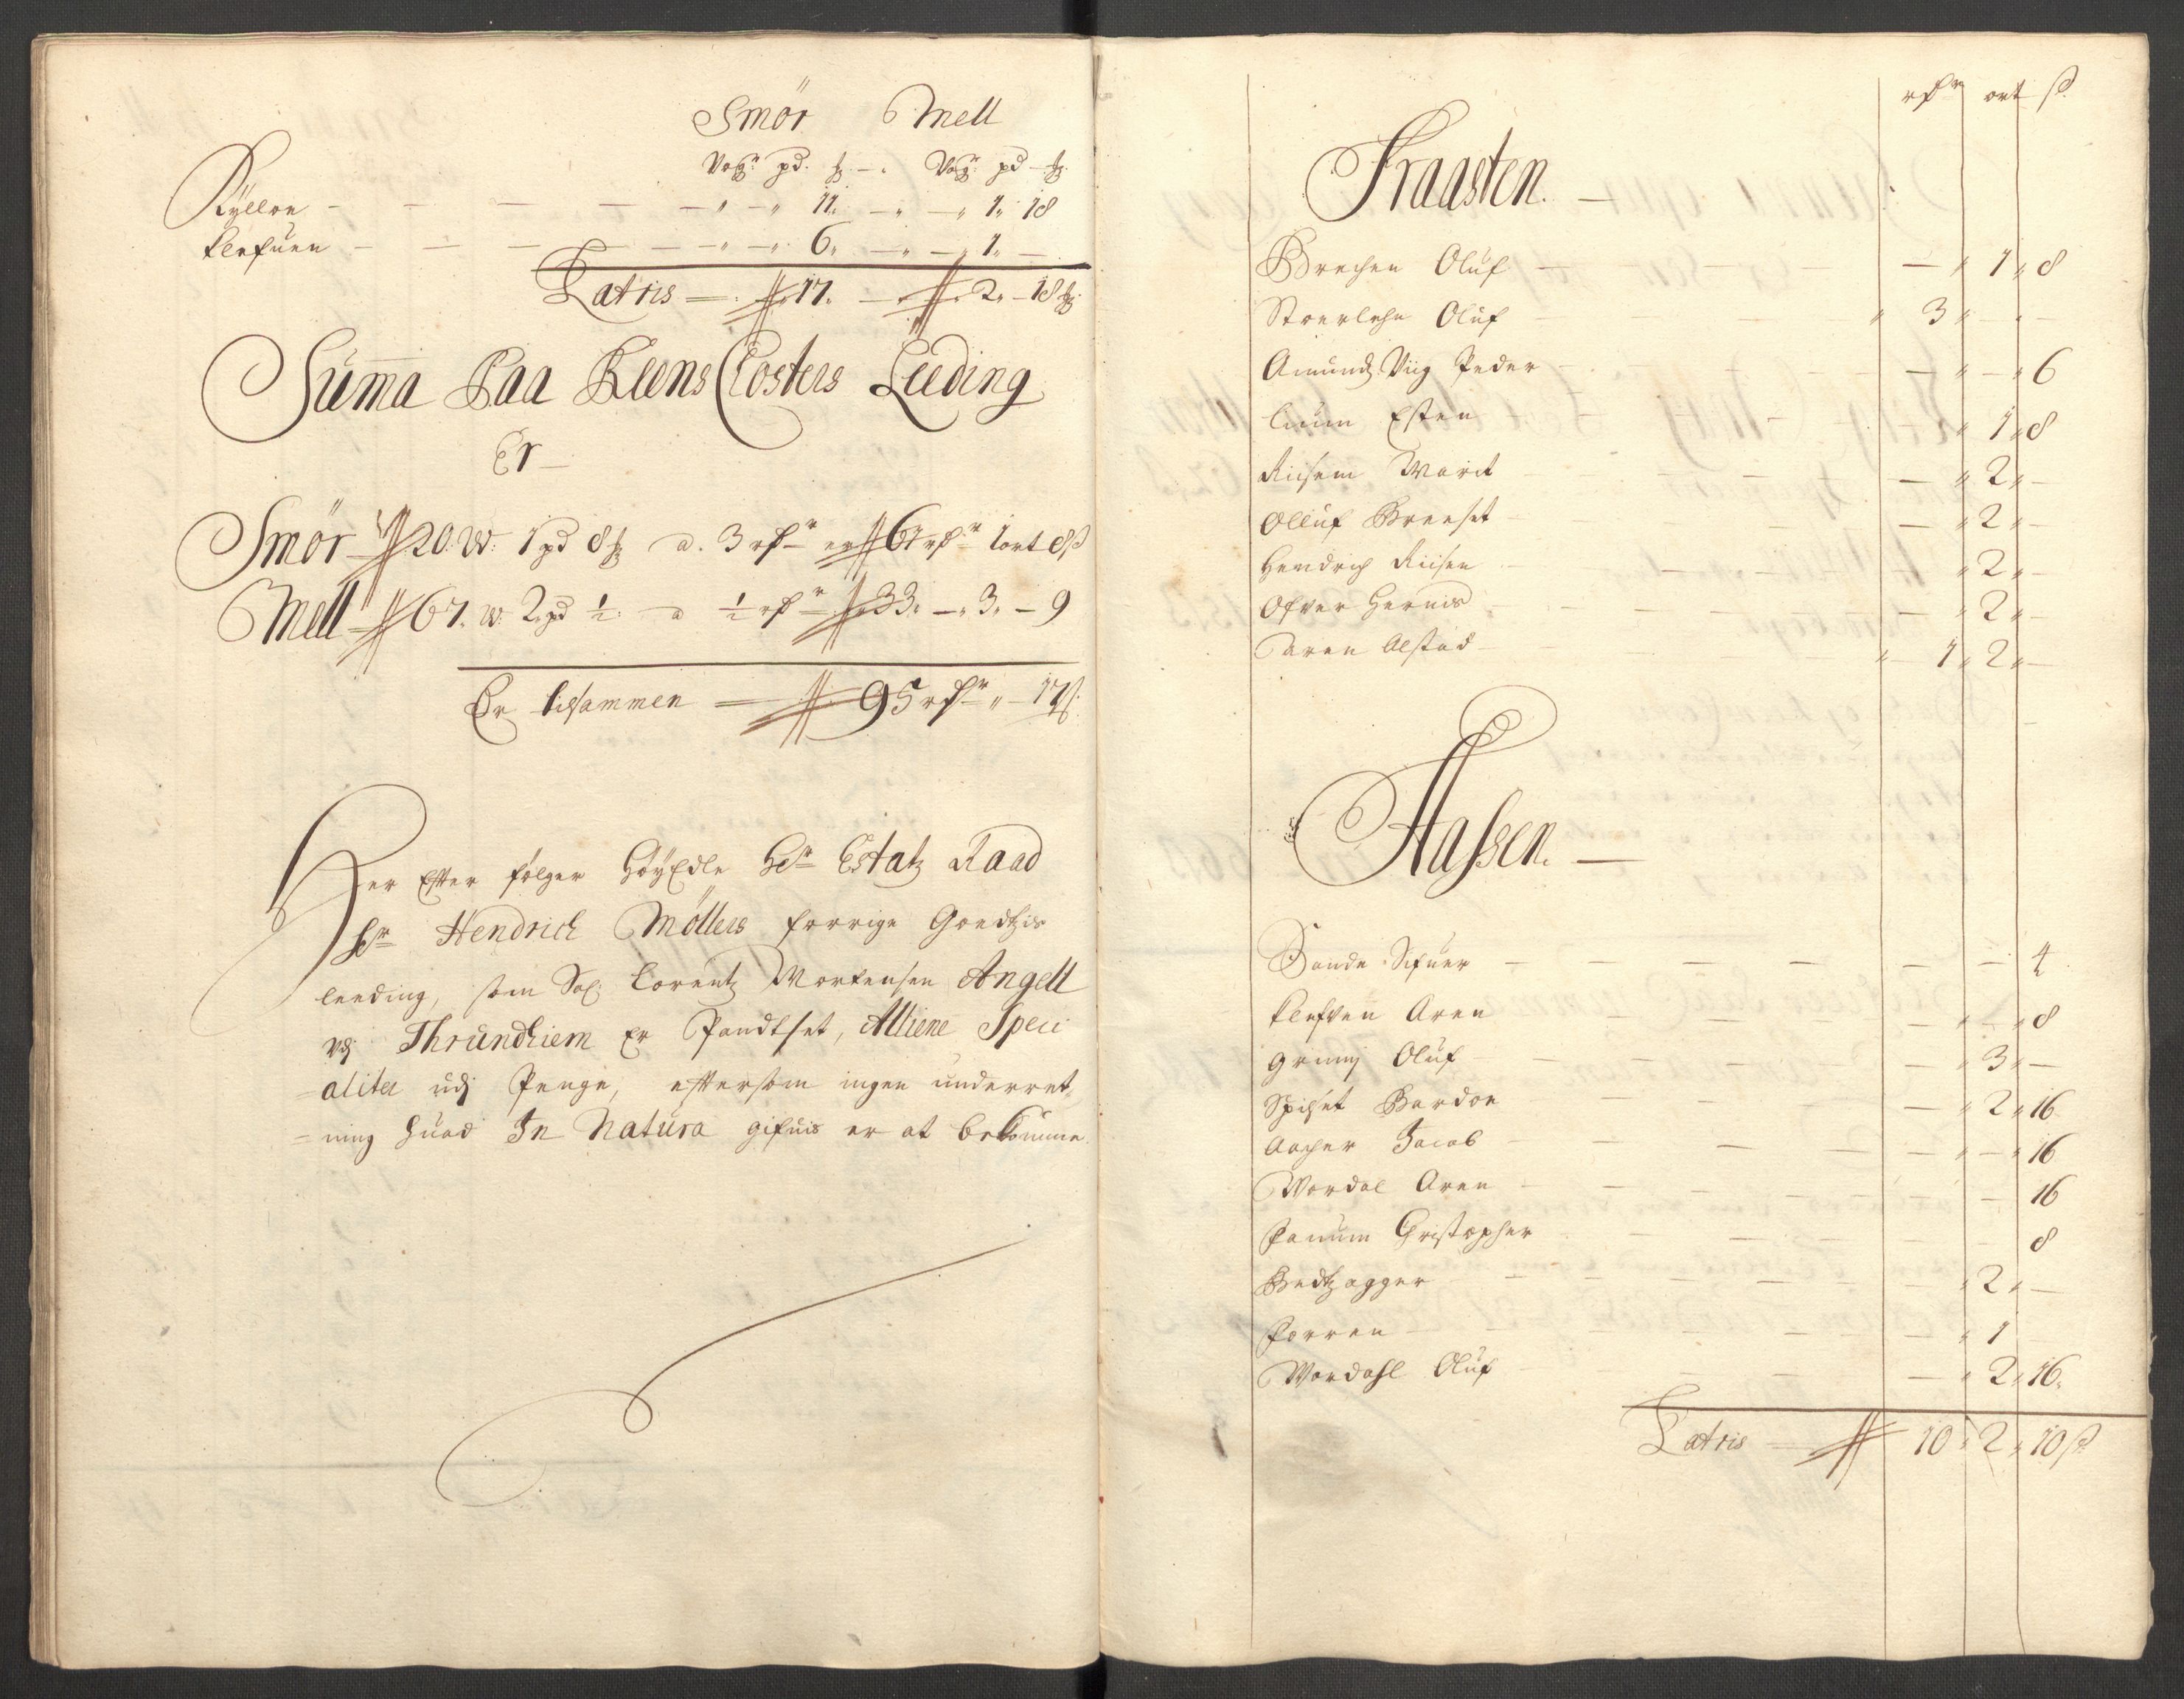 Smör Mell
Vog. pd. ℔ - Vog. pd - ℔
Kyllon - - - - - " - " 11. - " - " 1. 18
Klefuen - - - - - " - " 6. - " - " 1. -
Latris - 17. - 2. - 18 ℔
Summa Paa Reens Closters Leeding
Er
Smör 20. W. 1 pd 8 ℔ a. 3 rdr er 61 rdr 1 ort 8 s
Mell 67. w. 2 pd ½. a ½ rdr 33. - 3. - 9
Er tilsammen - 95 rdr " - 17 s.
Her Efter følger HöyEdle Hr Estatz Raad
Hr Hendrich Möllers forrige Goedtzis
leeding, som Sal: Lorentz Mortensen Angell
udj Thrundhiem Er Pandtsat, Alliene Speci
aliter udj Penge, eftersom ingen underret
=ning huad In Natura gifuis er at bekomme.
rdr ort s
Fraasten.
Brechen Oluf - " 1 " 8
Stoerlehn Oluf " 3 " - . -
Amund Viig Peder - " - " 6
Lium Esten " 1 " 8
Riisem Marit - " 2 " -
Olluf Breeset - " 2 " -
Hendrich Riisen - " 2 " -
Ofver Hernis - " 2 " -
Aren Alstad " 1 " 2 " -
Hassen.
Sande Sifuer - - 4
Klefven Aren - " - " 8
Grimj Oluf - " 3 " -
Spilset Bardon - " 2 " 16
Aacher Jacob - " - " 16
Wordal Aren - 16
Fanum Christopher 8
Bedtzagger - " 2 " -
Forren - " 1
Wordahl Oluf - " 2 " 16.
Latris 10 " 2 " 10 s